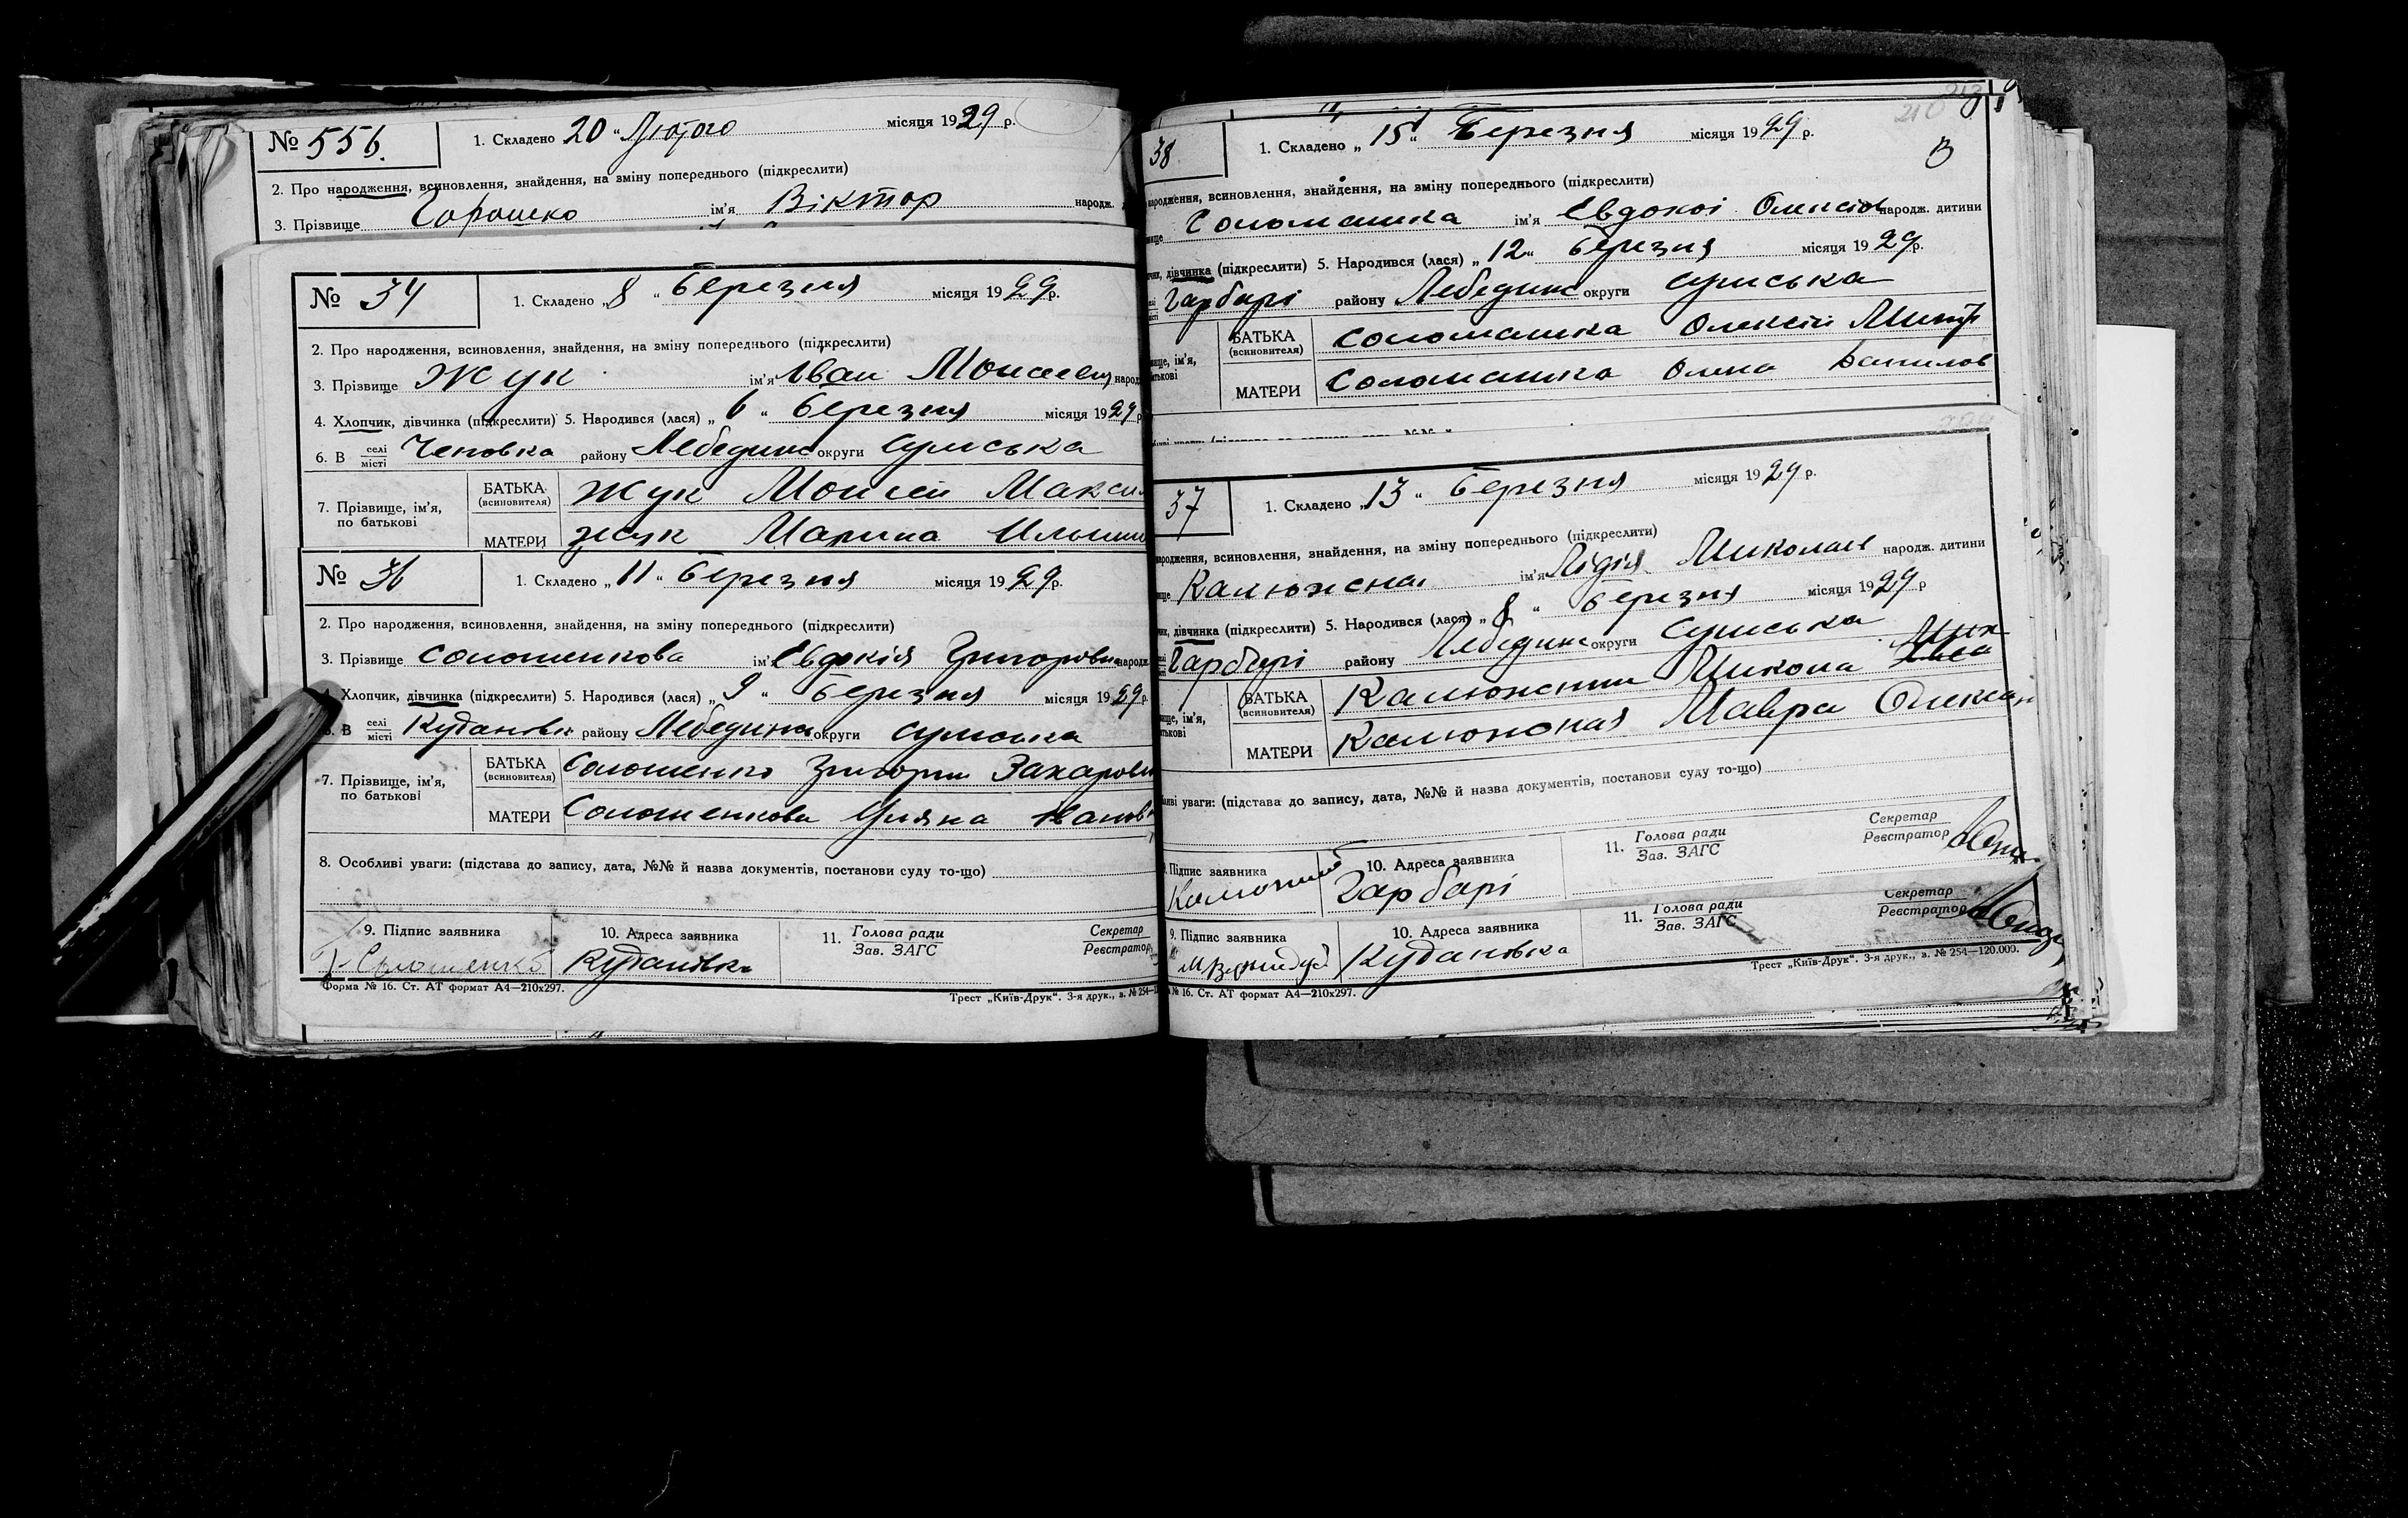 № 556. 1. Складено 20 „ Лютого місяця 1929 р.
2. Про народження, всиновлення, знайдення, на зміну попереднього (підкреслити)
3. Прізвище Горошко ім'я Віктор народж.
№ 34 1. Складено „ 8 “ березня місяця 1929 р.
2. Про народження, всиновлення, знайдення, на зміну попереднього (підкреслити)
3. Прізвище Жук ім'я Іван Моисеев народ
4. Хлопчик, дівчинка (підкреслити) 5. Народився (лася) „ 6 “ березня місяця 1929 р
6. В селі місті району Лебединс округи Сумська
7. Прізвище, ім'я, по батькові
БАТЬКА (всиновителя) Жук Моисей Макси
МАТЕРИ Жук Марина Ильини
№ 36 1. Складено „ 11 “ березня місяця 1929 р.
2. Про народження, всиновлення, знайдення, на зміну попереднього (підкреслити)
3. Прізвище Солошенкова ім'я Евдокія Григорівна народж
4. Хлопчик, дівчинка (підкреслити) 5. Народився (лася) „ 9 “ березня місяця 1929 р.
6. В селі місті Кудановк району Лебединс округи Сумська
7. Прізвище, ім'я, по батькові
БАТЬКА (всиновителя) Солошенко Григорий Захарови
МАТЕРИ Солошенкова Уляна Іванов
8. Особливі уваги: (підстава до запису, дата, №№ й назва документів, постанови суду то-що)
9. Підпис заявника Солошенко
10. Адреса заявника Кудановка
11. Голова ради Зав. ЗАГС
Секретар Реєстратор
Форма № 16. Ст. АТ формат А4—210x297.
Трест „Київ-Друк“. 3-я друк., з. № 254—1
38 1. Складено „ 15 “ Березня місяця 1929 р.
народження, всиновлення, знайдення, на зміну попереднього (підкреслити)
Соломашка ім'я Євдокоі Олексіов народж. дитини
дівчинка (підкреслити) 5. Народився (лася) „ 12 “ березня місяця 1929 р.
Гарбарі району Лебединс округи Сумська
БАТЬКА (всиновителя) Соломашка Олексій Мит
МАТЕРИ Соломашка Олена Данилов
37 1. Складено „ 13 “ березня місяця 1929 р.
народження, всиновлення, знайдення, на зміну попереднього (підкреслити)
Калюжная ім'я Лідія Миколаев народж. дитини
дівчинка (підкреслити) 5. Народився (лася) „ 8 “ березня місяця 1929 р
Гарбарі району Лебединс округи Сумська
БАТЬКА (всиновителя) Калюжний Микола Мих
МАТЕРИ Калюжная Мавра Олексан
уваги: (підстава до запису, дата, №№ й назва документів, постанови суду то-що)
Підпис заявника Калюжний
10. Адреса заявника Гарбарі
11. Голова ради Зав. ЗАГС
Секретар Реєстратор
9. Підпис заявника
10. Адреса заявника Кудановка
11. Голова ради Зав. ЗАГС
Секретар Реєстратор
№ 16. Ст. АТ формат А4—210x297.
Трест „Київ-Друк“. 3-я друк., з. № 254—120.000.